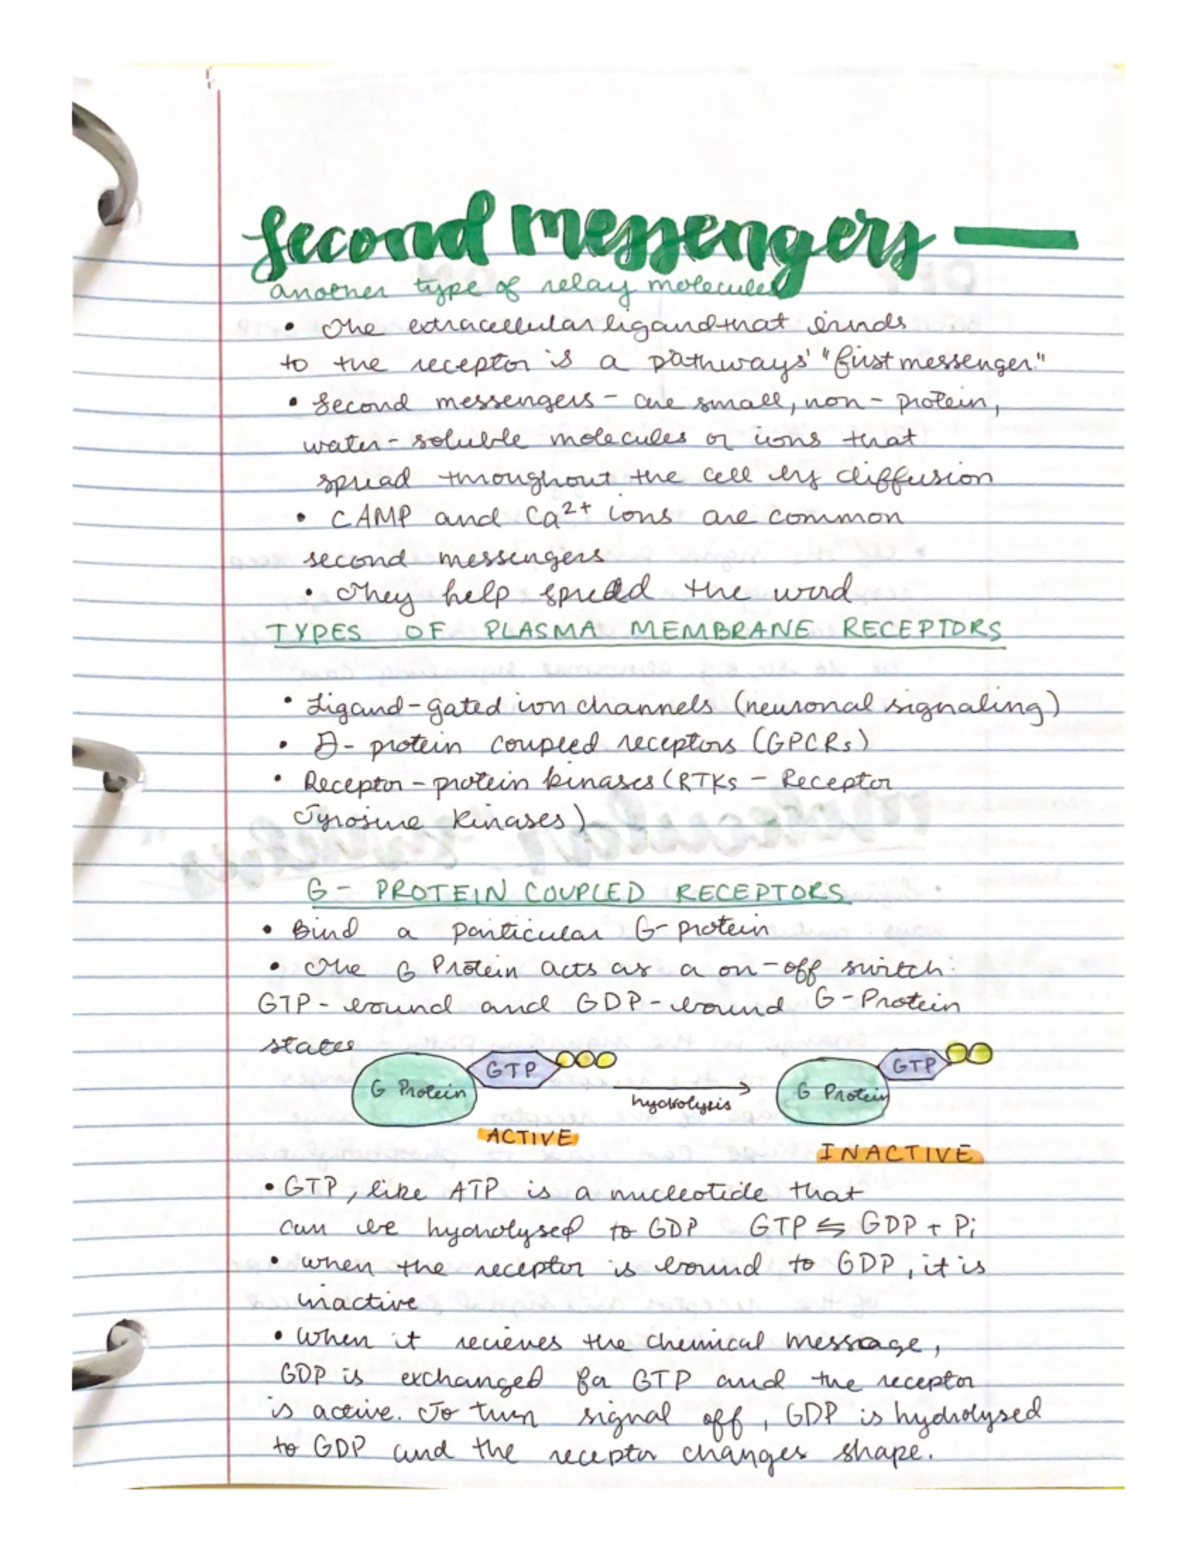 Second messengers —
another type of relay molecules
• The extracellular ligand that binds
to the receptor is a pathways' "first messenger."
• Second messengers - are small, non-protein,
water-soluble molecules or ions that
spread throughout the cell by diffusion
• CAMP and Ca2+ ions are common
second messengers
• They help spread the word
TYPES OF PLASMA MEMBRANE RECEPTORS
• Ligand-gated ion channels (neuronal signaling)
• G-protein coupled receptors (GPCRs)
• Receptor-protein kinases (RTKs - Receptor
Tyrosine Kinases)
G-PROTEIN COUPLED RECEPTORS
• Bind a particular G-protein
• The G Protein acts as a on-off switch:
GTP-bound and GDP-bound G-Protein
states
G Protein GTP hydrolysis G Protein GTP
ACTIVE INACTIVE
• GTP, like ATP is a nucleotide that
can be hydrolysed to GDP GTP ⇆ GDP + Pi
• when the receptor is bound to GDP, it is
inactive
• When it recieves the chemical message,
GDP is exchanged for GTP and the receptor
is active. To turn signal off, GDP is hydrolysed
to GDP and the receptor changes shape.